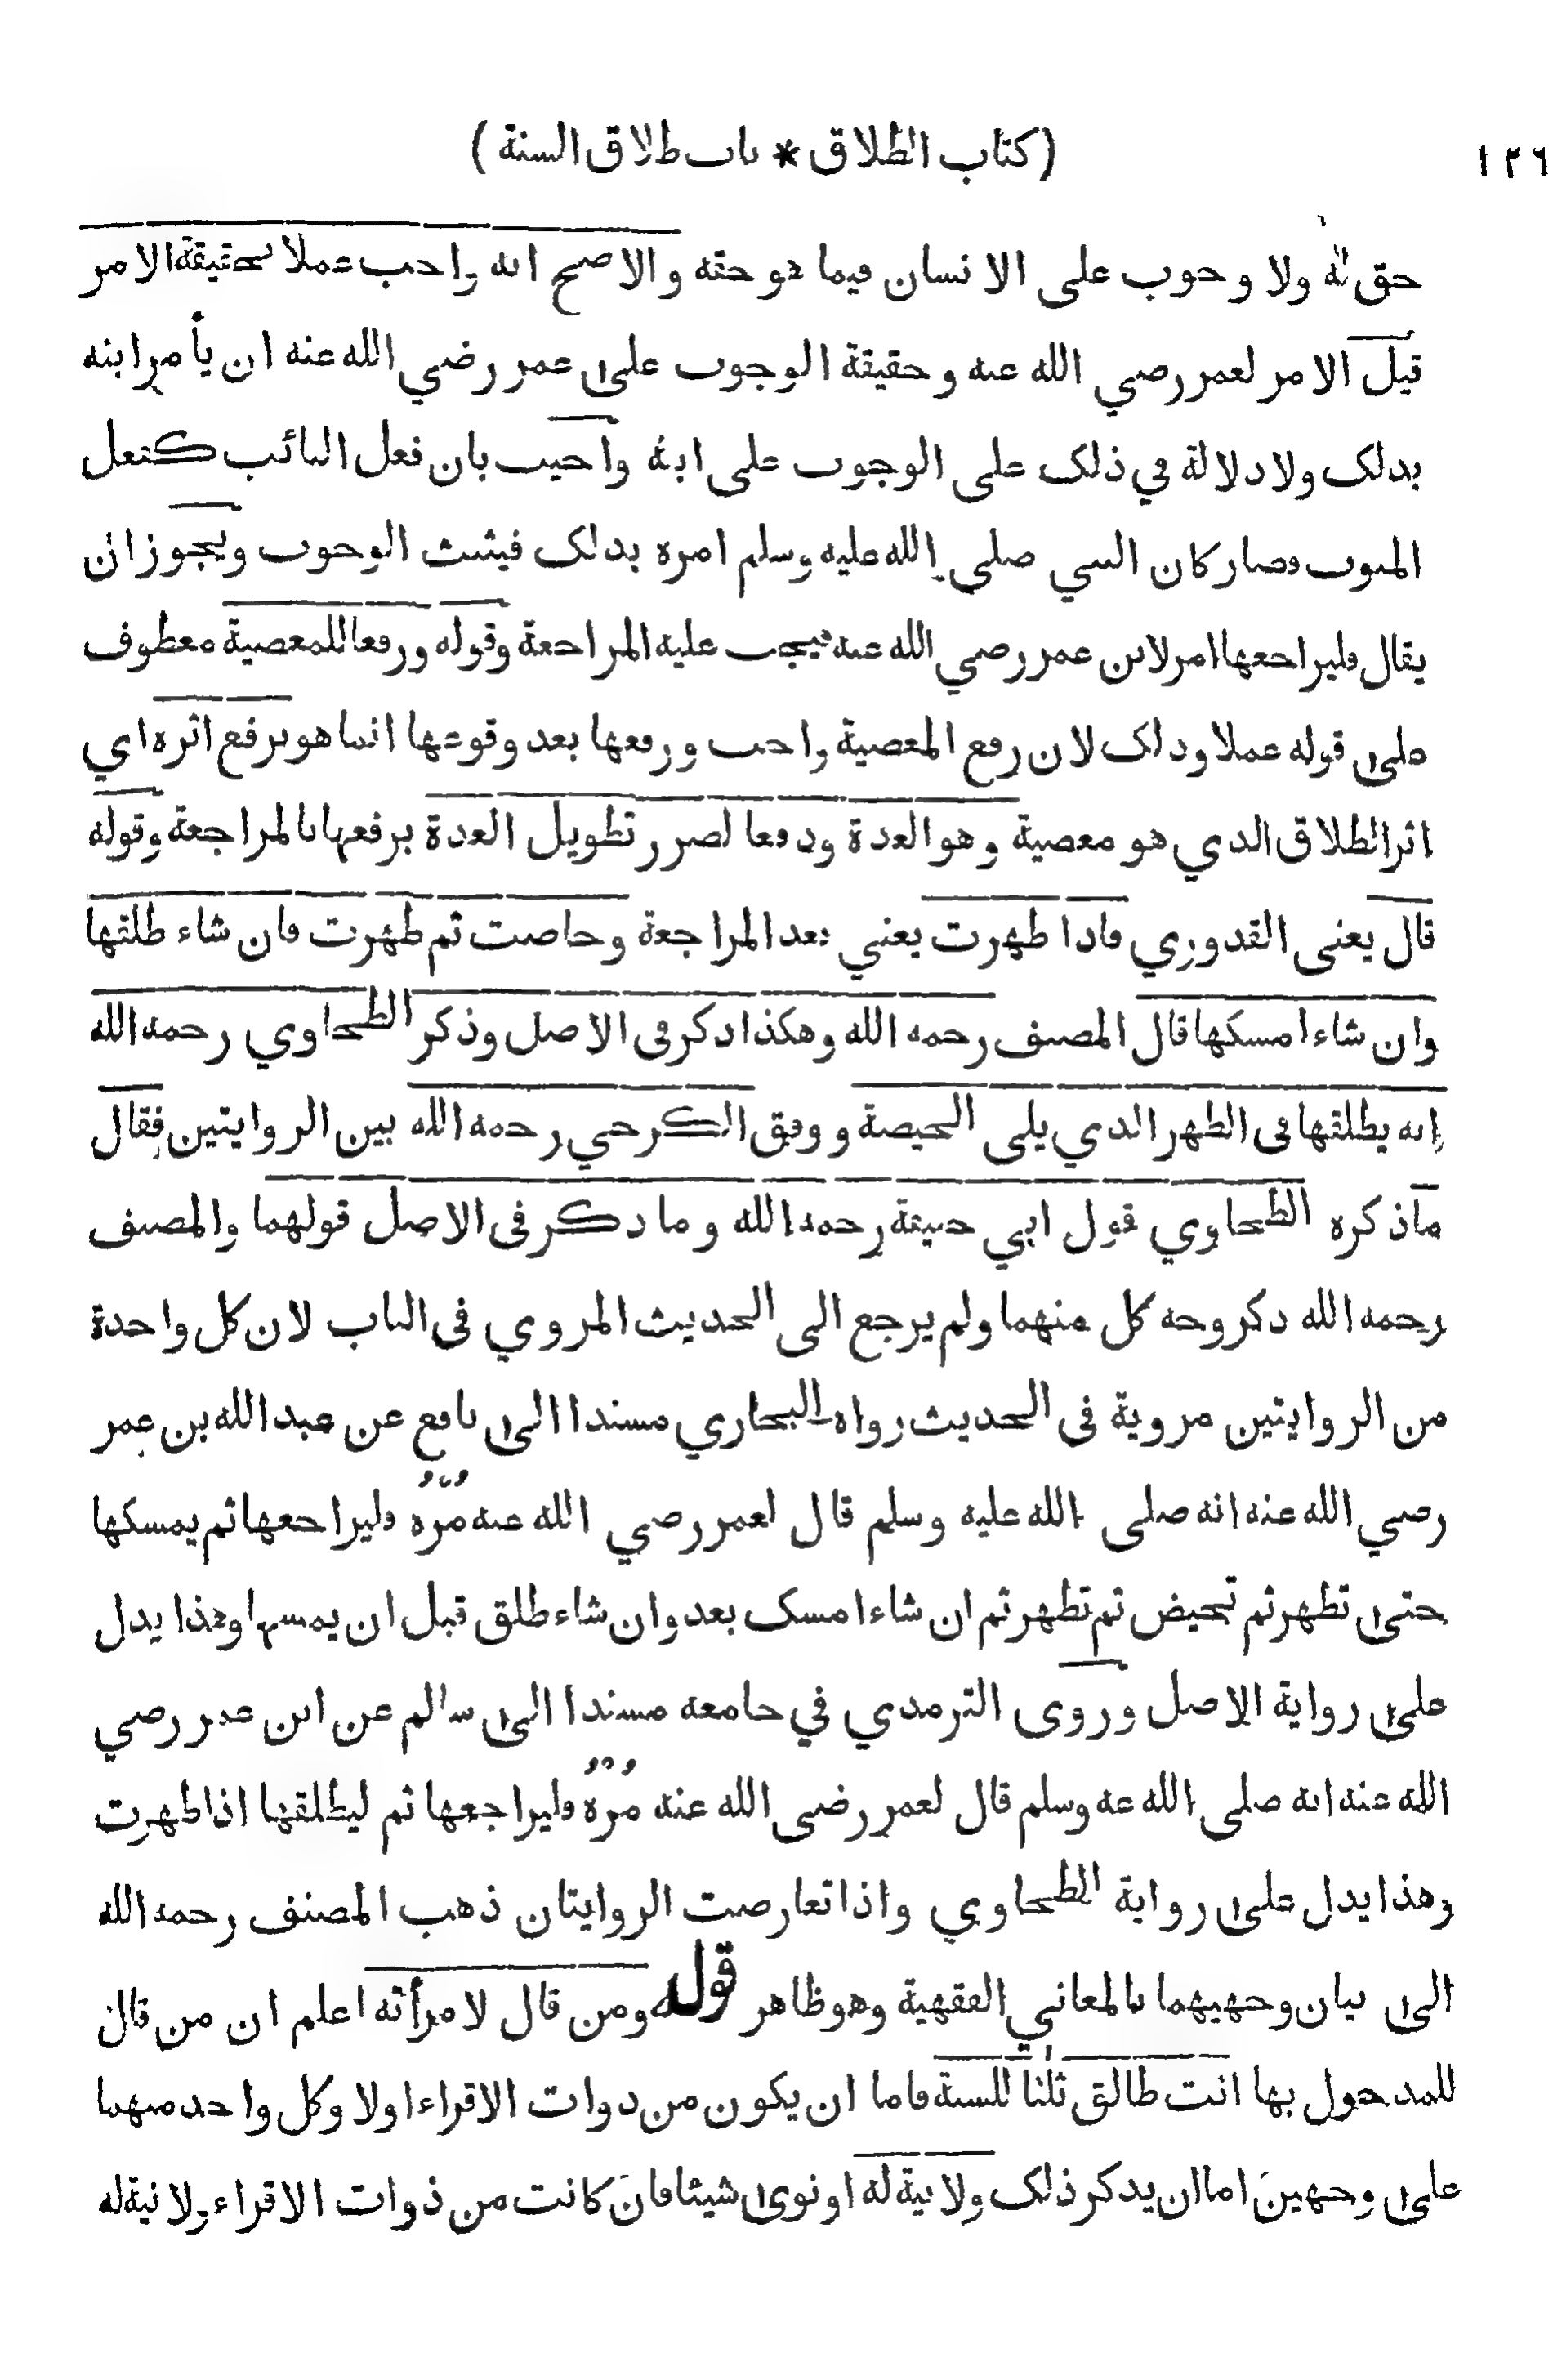 ١٢٦ (كتاب الطلاق * باب طلاق السنة)
حق له ولا وجوب على الانسان فيما هو حقه والاصح انه واجب عملا بحقيقة الامر
قيل الامر لعمر رضي الله عنه وحقيقة الوجوب على عمر رضي الله عنه ان يأمر ابنه
بذلك ولا دلالة في ذلك على الوجوب على ابنه واجيب بان فعل النائب كفعل
المنوب فصار كان النبي صلى الله عليه وسلم امره بذلك فيثبت الوجوب ويجوز ان
يقال فليراجعها امر لابن عمر رضي الله عنه فيجب عليه المراجعة وقوله ورفعا للمعصية معطوف
على قوله عملا وذلك لان رفع المعصية واجب ورفعها بعد وقوعها انما هو برفع اثره اي
اثر الطلاق الذي هو معصية وهو العدة ودفعا لضرر تطويل العدة برفعها بالمراجعة وقوله
قال يعنى القدوري فاذا طهرت يعني بعد المراجعة وحاضت ثم طهرت فان شاء طلقها
وان شاء امسكها قال المصنف رحمه الله وهكذا ذكر فى الاصل وذكر الطحاوي رحمه الله
انه يطلقها فى الطهر الذي يلى الحيضة ووفق الكرخي رحمه الله بين الروايتين فقال
ماذكره الطحاوي قول ابي حنيفة رحمه الله وما ذكر فى الاصل قولهما والمصنف
رحمه الله ذكر وجه كل منهما ولم يرجع الى الحديث المروي فى الباب لان كل واحدة
من الروايتين مروية فى الحديث رواه البخاري مسندا الى نافع عن عبد الله بن عمر
رضي الله عنه انه صلى الله عليه وسلم قال لعمر رضي الله عنه مُرْهُ فليراجعها ثم يمسكها
حتى تطهر ثم تحيض ثم تطهر ثم ان شاء امسك بعد وان شاء طلق قبل ان يمسها وهذا يدل
على رواية الاصل وروى الترمذي في جامعه مسندا الى سالم عن ابن عمر رضي
الله عنه انه صلى الله عه وسلم قال لعمر رضى الله عنه مُرْهُ فليراجعها ثم ليطلقها اذا طهرت
وهذا يدل على رواية الطحاوي واذا تعارضت الروايتان ذهب المصنف رحمه الله
الى بيان وجهيهما بالمعاني الفقهية وهو ظاهر قوله ومن قال لامرأته اعلم ان من قال
للمدخول بها انت طالق ثلثا للسنة فاما ان يكون من ذوات الاقراء اولا وكل واحد منهما
على وجهين اما ان يذكر ذلك ولا نية له او نوى شيئا فان كانت من ذوات الاقراء ولا نية له